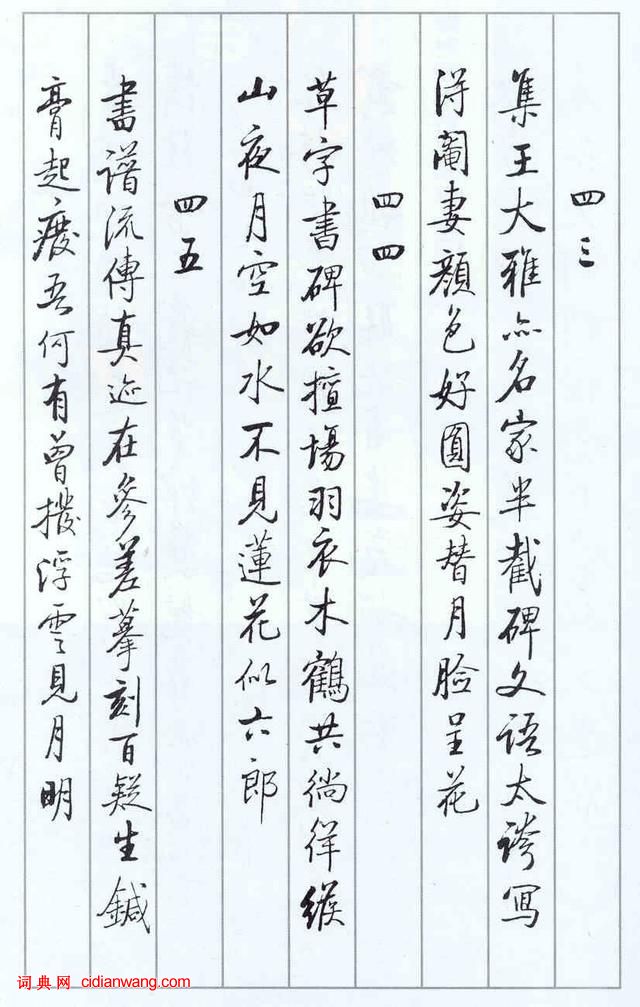 四三
集王大雅亦名家半截碑文语太誇寫
得閹妻顏色好圓姿替月臉呈花
四四
草字書碑欲擅場羽衣木鶴共徜徉緱
山夜月空如水不見蓮花似六郎
四五
書譜流傳真迹在參差摹刻百疑生鍼
膏起廢吾何有曾撥浮雲見月明
词典网 cidianwang.com